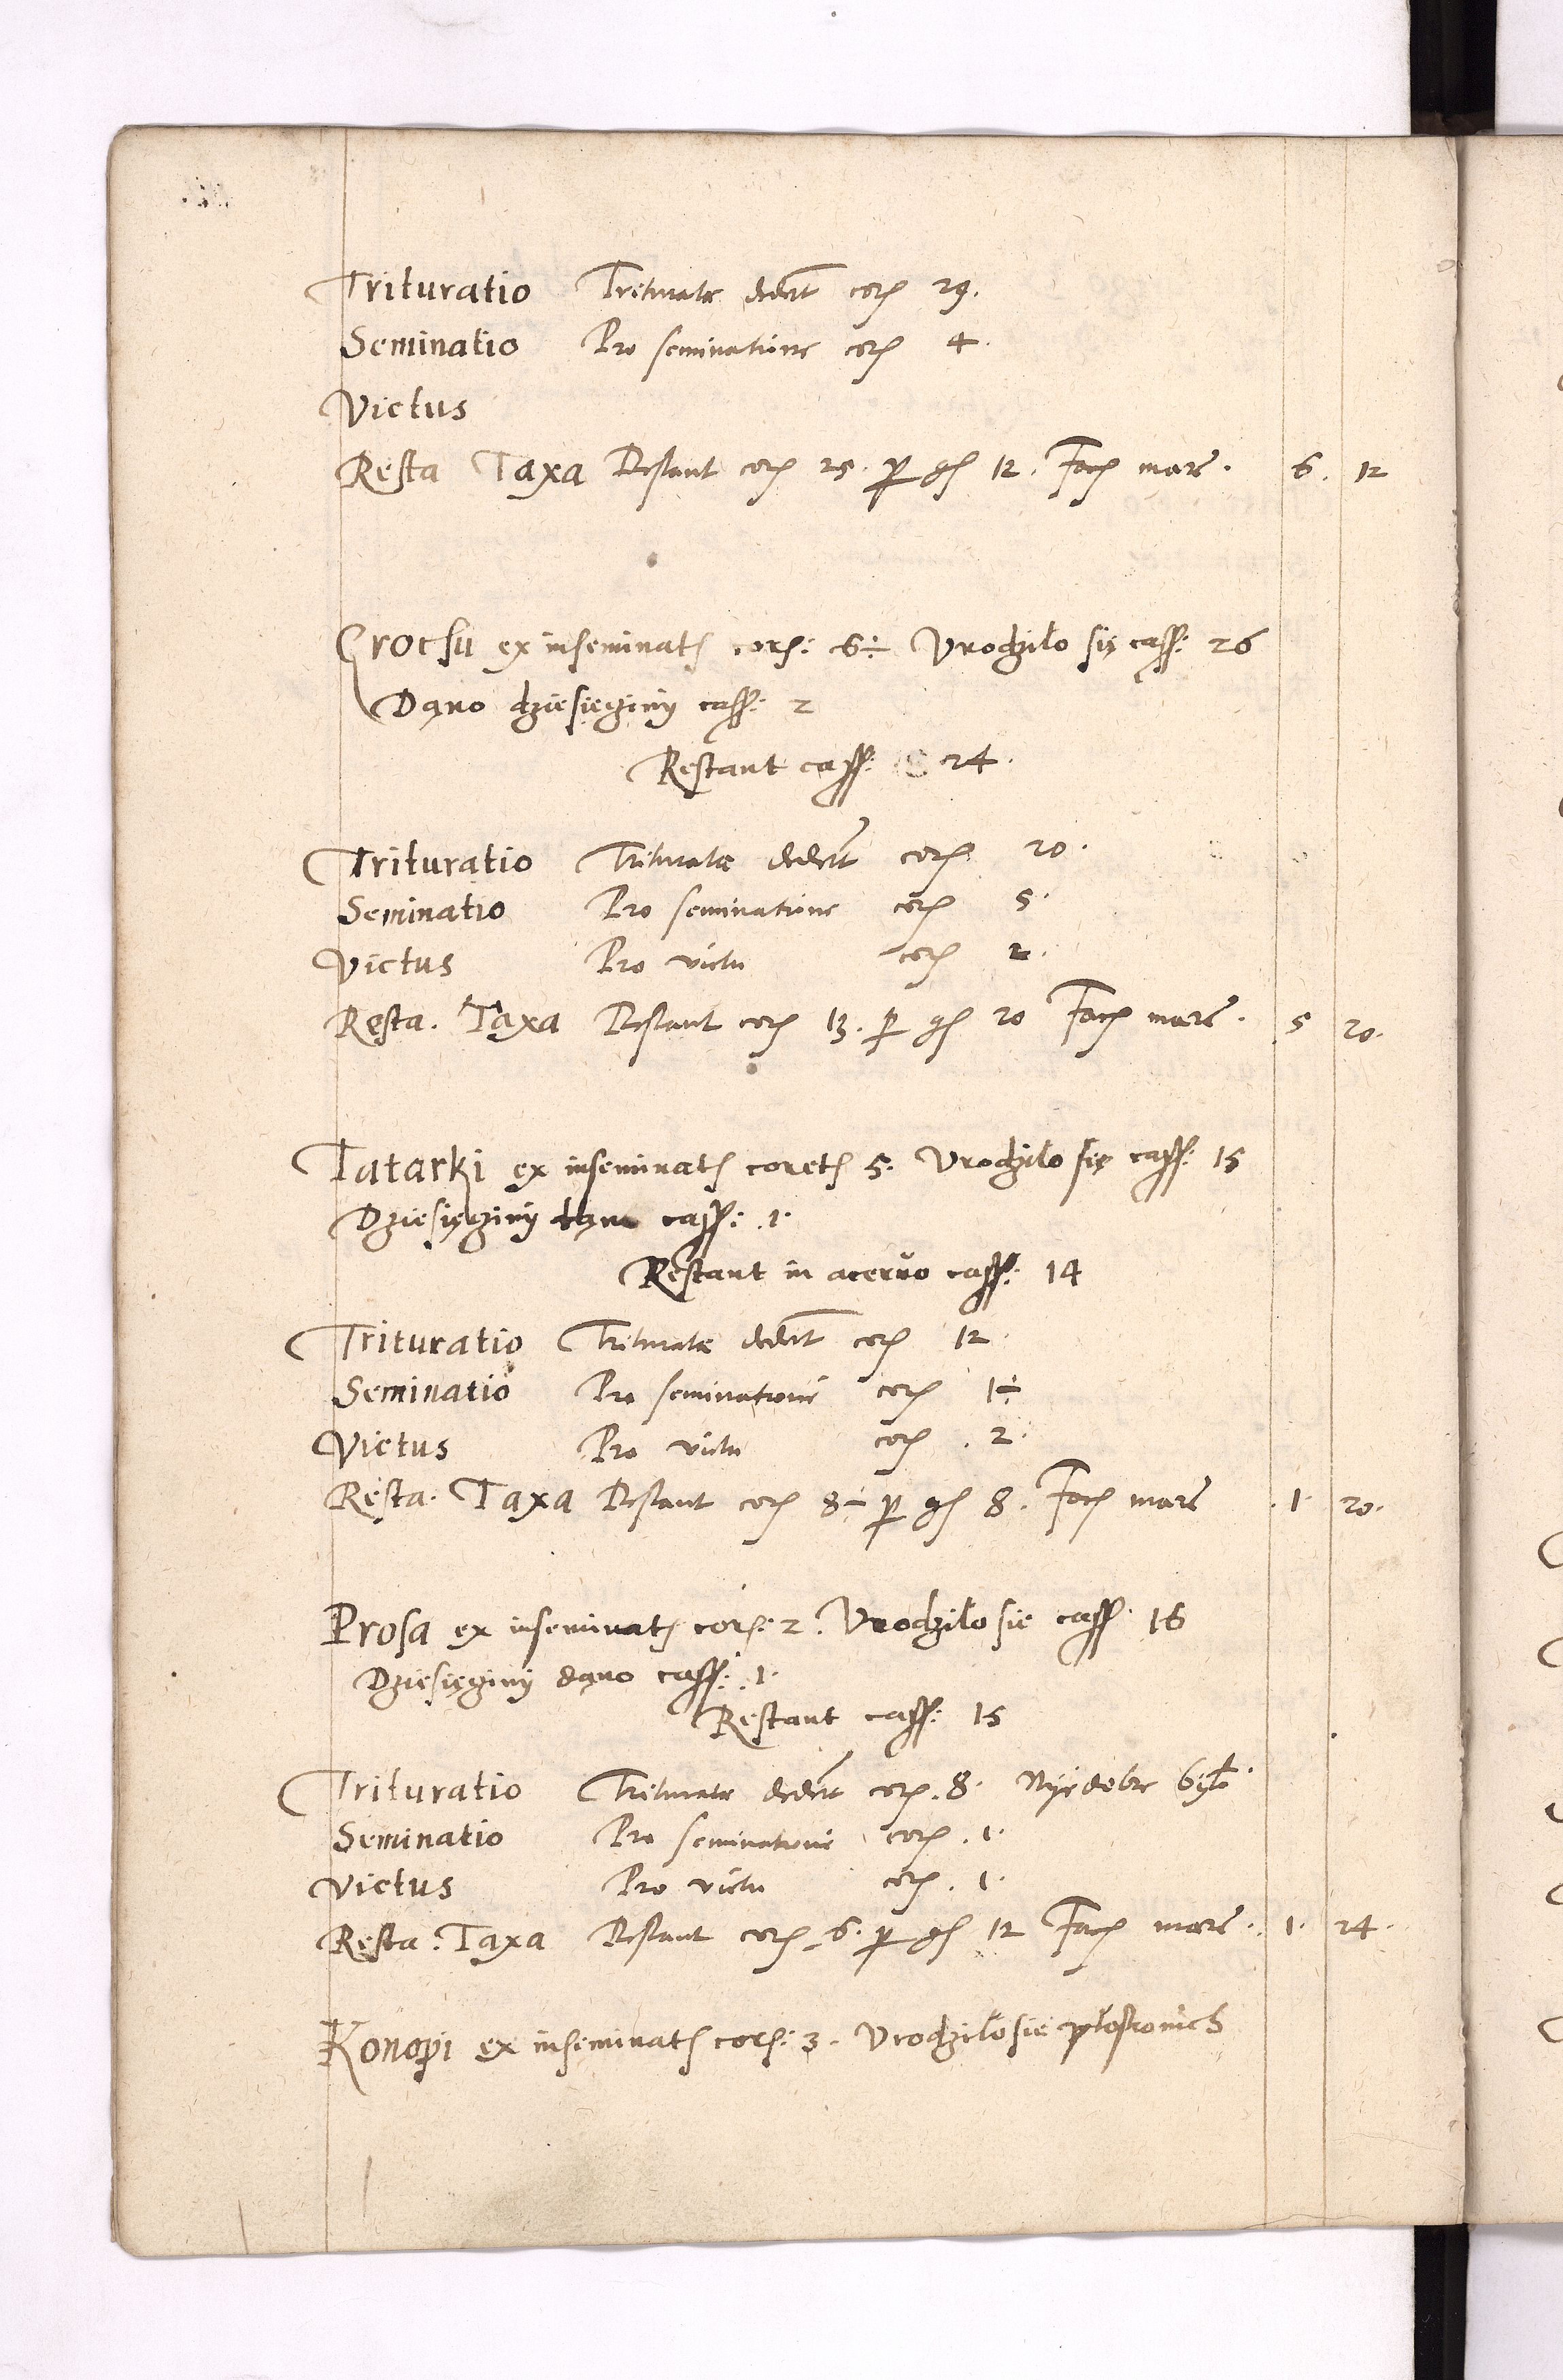 Trituratio Triturate dedert corζ 29.
Seminatio Pro seminatione corζ 4.
Victus
Resta Taxa Restant corζ 25. p gſ 12. Facζ marc. 6. 12
Grochu ex inseminatζ corζ: 6÷ Vrodzilo się caſſ: 26
Dąno dziesięciny caſſ: 2
Restant caſſ: 24.
Trituratio Triturate dedert corζ 20.
Seminatio Pro seminatione corζ 5.
Victus Pro victu corζ 2.
Resta. Taxa Restant corζ 13. p gſ 20 Facζ marc. 5 20.
Tatarki ex inseminatζ coretζ 5. Vrodzilo się caſſ: 15
Dziesięciny dąno caſſ: .1.
Restant in aceruo caſſ: 14
Trituratio Triturate dedert corζ 12.
Seminatio Pro seminatione corζ 1÷
Victus Pro victu corζ . 2.
Resta. Taxa Restant corζ 8÷ p gſ 8. Facζ marc .1. 20.
Prosa ex inseminatζ corζ: 2. Vrodzilo sie caſſ: 16
Dziesięciny dąno caſſ: .1.
Restant caſſ: 15
Trituratio Triturate dedert corζ. 8. Nyedobre bÿlo.
Seminatio Pro seminatione corζ . 1.
Victus Pro victu corζ . 1.
Resta. Taxa Restant corζ 6. p gſ 12 Facζ marc. 1. 24.
Konopi ex inseminatζ corζ: 3. Vrodzilo sie płoskonich